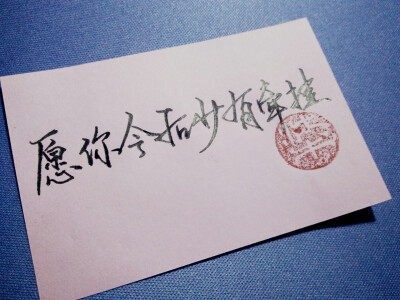 愿你今后少有牵挂